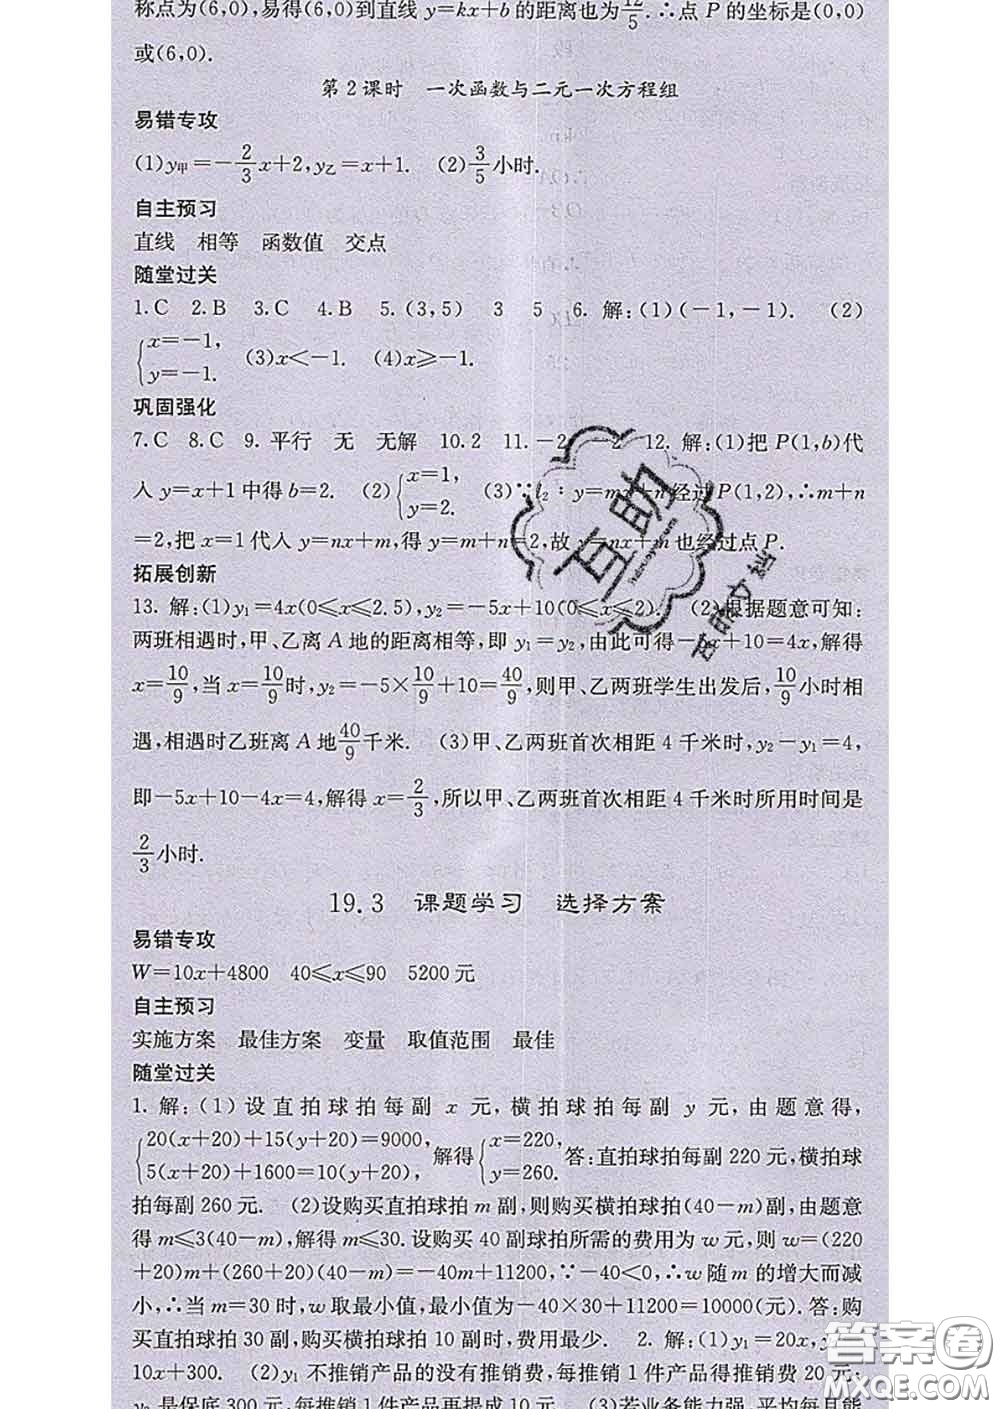 称点为(6,0),易得(6,0)到直线 y=kx+b 的距离也为12/5.∴点 P 的坐标是(0,0)
或(6,0).
第2课时 一次函数与二元一次方程组
易错专攻
(1)y甲=-2/3x+2,y乙=x+1. (2)3/5小时.
自主预习
直线 相等 函数值 交点
随堂过关
1.C 2.B 3.C 4.B 5.(3,5) 3 5 6.解:(1)(-1,-1). (2)
{x=-1,
y=-1. (3)x<-1. (4)x≥-1.
巩固强化
7.C 8.C 9.平行 无 无解 10.2 11.-2 -2 12.解:(1)把 P(1,b)代
入 y=x+1 中得 b=2. (2){x=1,
y=2. (3)∵l₂:y=mx+n 经过 P(1,2),∴m+n
=2,把 x=1 代入 y=nx+m,得 y=m+n=2,故 y=nx+m 也经过点 P.
拓展创新
13.解:(1)y₁=4x(0≤x≤2.5),y₂=-5x+10(0≤x≤2). (2)根据题意可知:
两班相遇时,甲、乙离 A 地的距离相等,即 y₁=y₂,由此可得-5x+10=4x,解得
x=10/9,当 x=10/9时,y₂=-5×10/9+10=40/9,则甲、乙两班学生出发后,10/9小时相
遇,相遇时乙班离 A 地40/9千米. (3)甲、乙两班首次相距 4 千米时,y₂-y₁=4,
即-5x+10-4x=4,解得 x=2/3,所以甲、乙两班首次相距 4 千米时所用时间是
2/3小时.
19.3 课题学习 选择方案
易错专攻
W=10x+4800 40≤x≤90 5200 元
自主预习
实施方案 最佳方案 变量 取值范围 最佳
随堂过关
1.解:(1)设直拍球拍每副 x 元,横拍球拍每副 y 元,由题意得,
{20(x+20)+15(y+20)=9000,
5(x+20)+1600=10(y+20), 解得{x=220,
y=260. 答:直拍球拍每副 220 元,横拍球
拍每副 260 元. (2)设购买直拍球拍 m 副,则购买横拍球拍(40-m)副,由题意
得 m≤3(40-m),解得 m≤30.设购买 40 副球拍所需的费用为 w 元,则 w=(220
+20)m+(260+20)(40-m)=-40m+11200,∵-40<0,∴w 随 m 的增大而减
小,∴当 m=30 时,w 取最小值,最小值为-40×30+11200=10000(元).答:购
买直拍球拍 30 副,购买横拍球拍 10 副时,费用最少. 2.解:(1)y₁=20x,y₂=
10x+300. (2)y₁ 不推销产品的没有推销费,每推销 1 件产品得推销费 20 元,
y₂ 是保底 300 元,每推销 1 件产品再提成 10 元. (3)若业务能力强,平均每月能
互助
答案圈
MXQE.COM